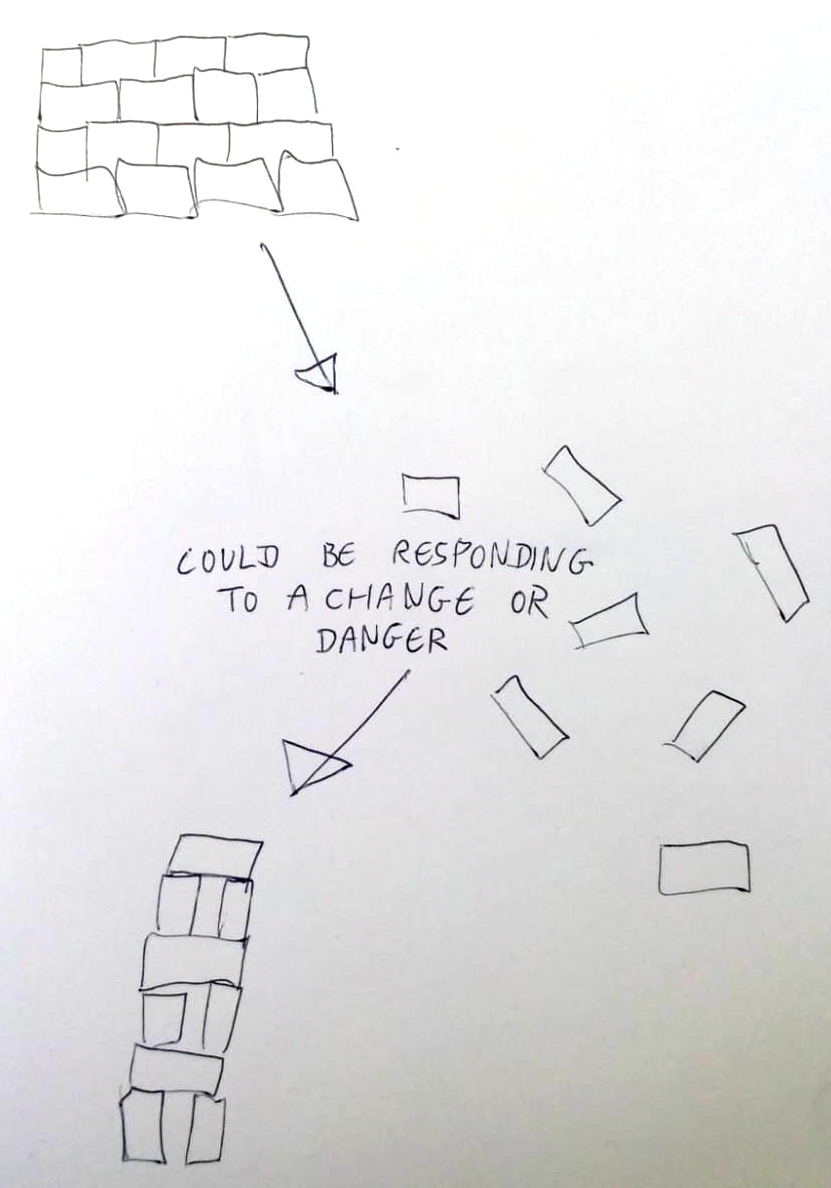 COULD BE RESPONDING
TO A CHANGE OR
DANGER